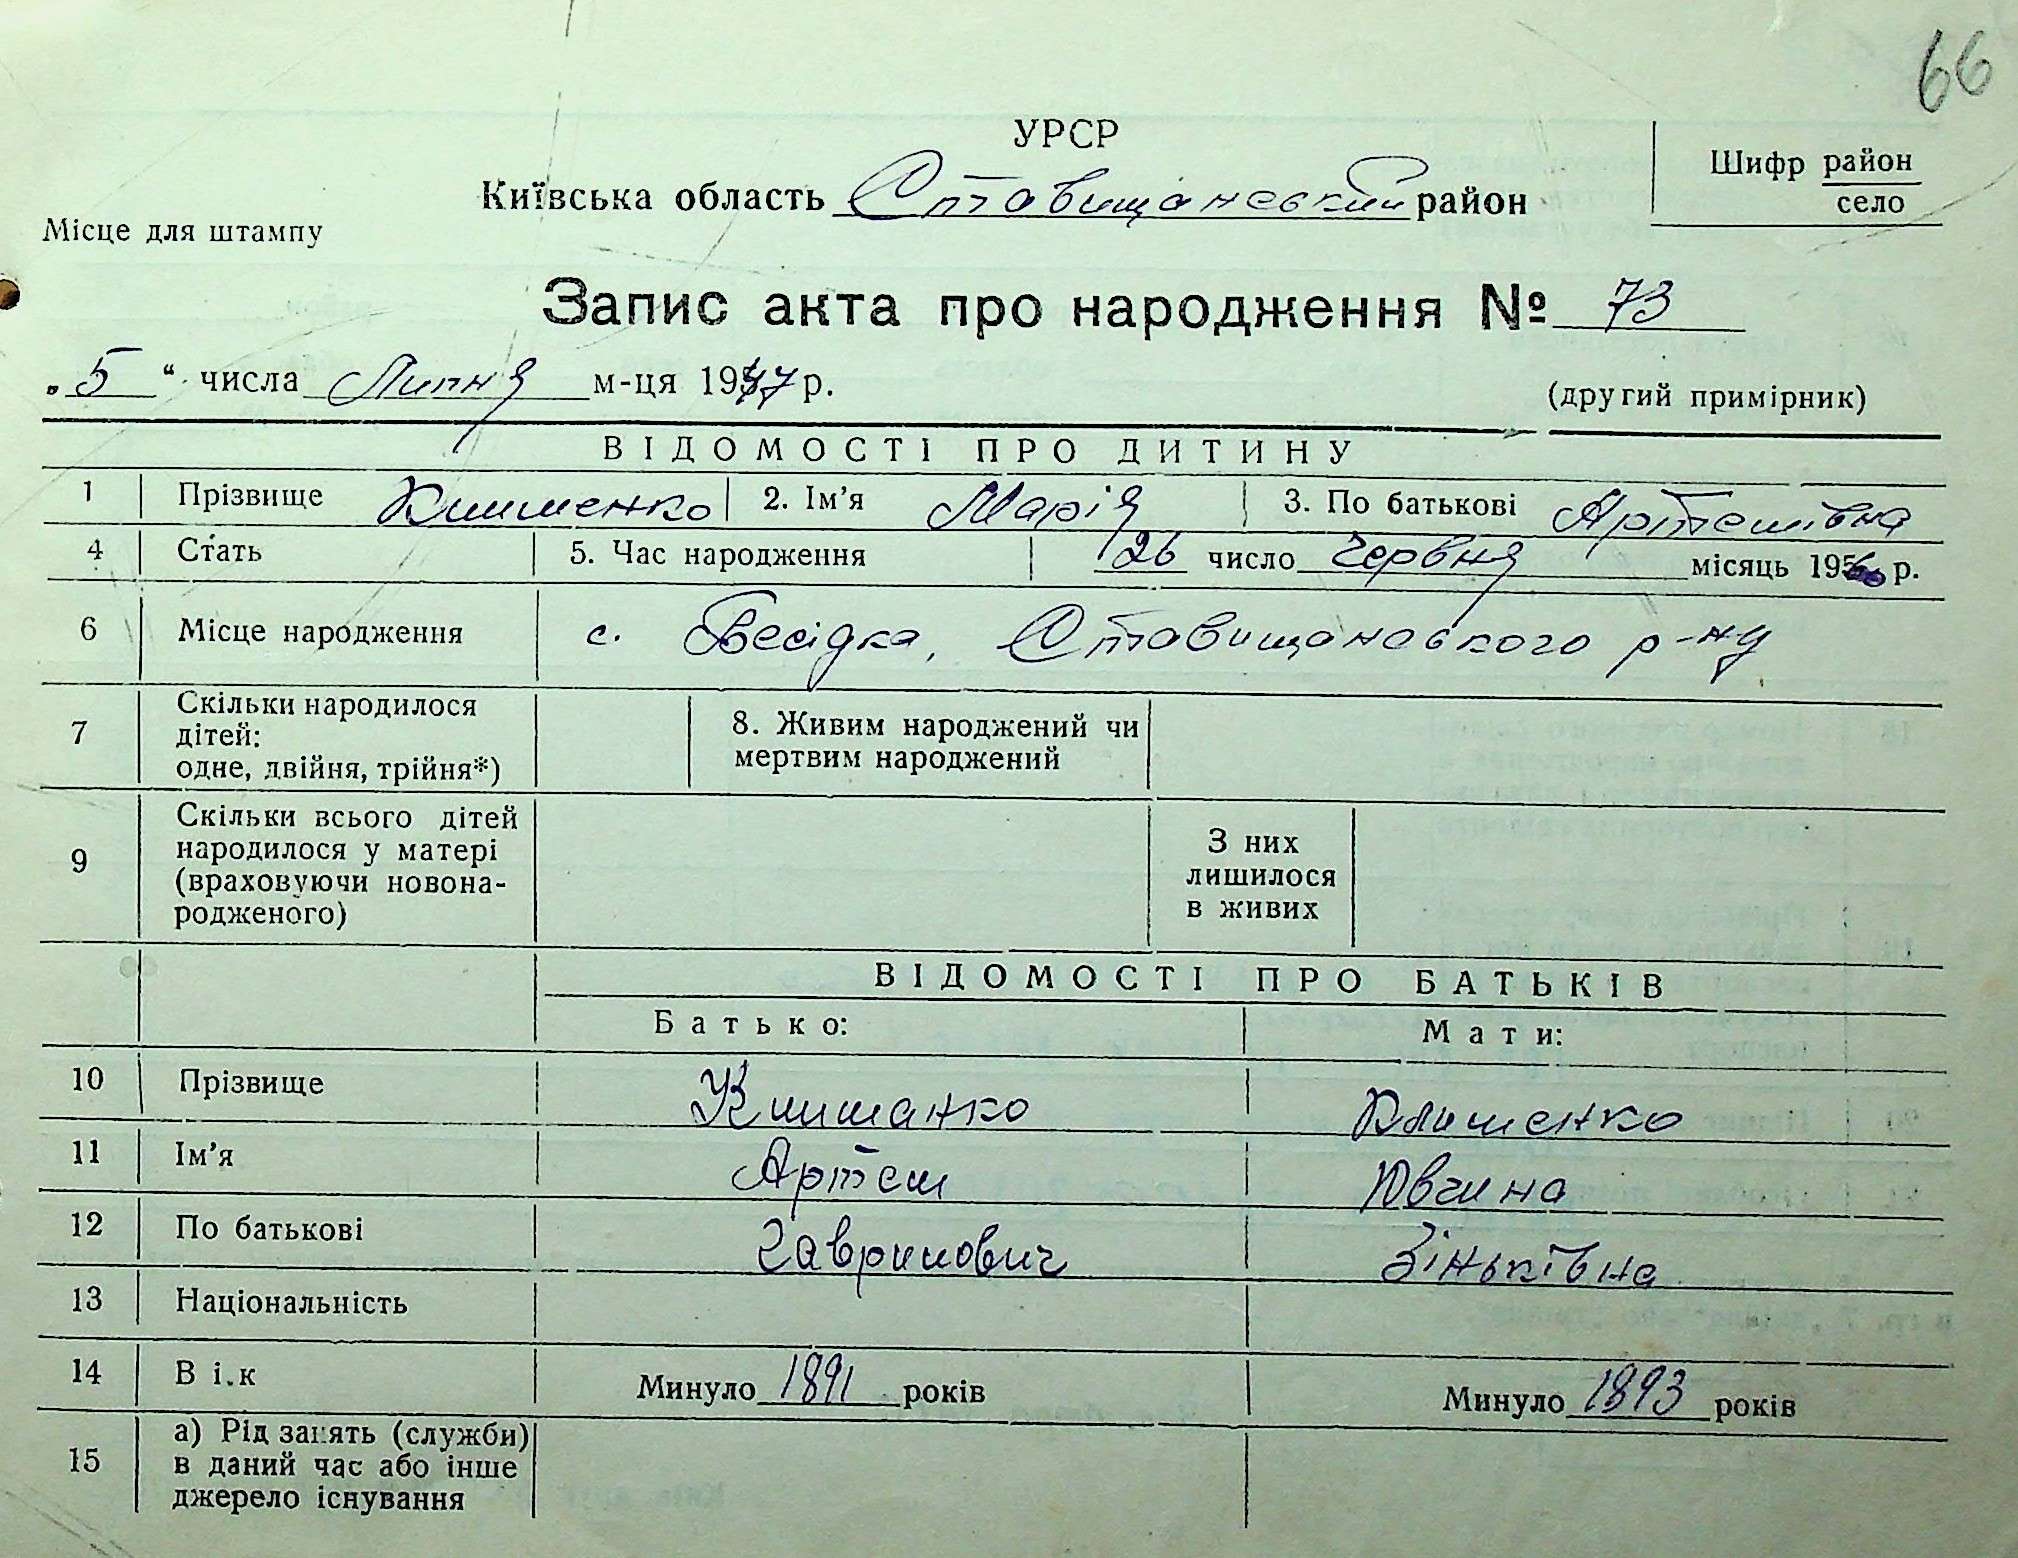 66
УРСР
Київська область Ставищанський район
Шифр район
село
Місце для штампу
Запис акта про народження № 73
„5“ числа Липня м-ця 1947 р.
(другий примірник)
ВІДОМОСТІ ПРО ДИТИНУ
1 Прізвище Клименко 2. Ім’я Марія 3. По батькові Артемівна
4 Стать 5. Час народження 26 число червня місяць 195 р.
6 Місце народження с. Бесідка, Ставищанського р-ну
7 Скільки народилося
дітей:
одне, двійня, трійня*)
8. Живим народжений чи
мертвим народжений
9 Скільки всього дітей
народилося у матері
(враховуючи новона-
родженого)
З них
лишилося
в живих
ВІДОМОСТІ ПРО БАТЬКІВ
Батько: Мати:
10 Прізвище Климанко Клименко
11 Ім’я Артем Ювгина
12 По батькові Гаврилович Зіньківна
13 Національність
14 Вік Минуло 1891 років Минуло 1893 років
15 а) Рід занять (служби)
в даний час або інше
джерело існування